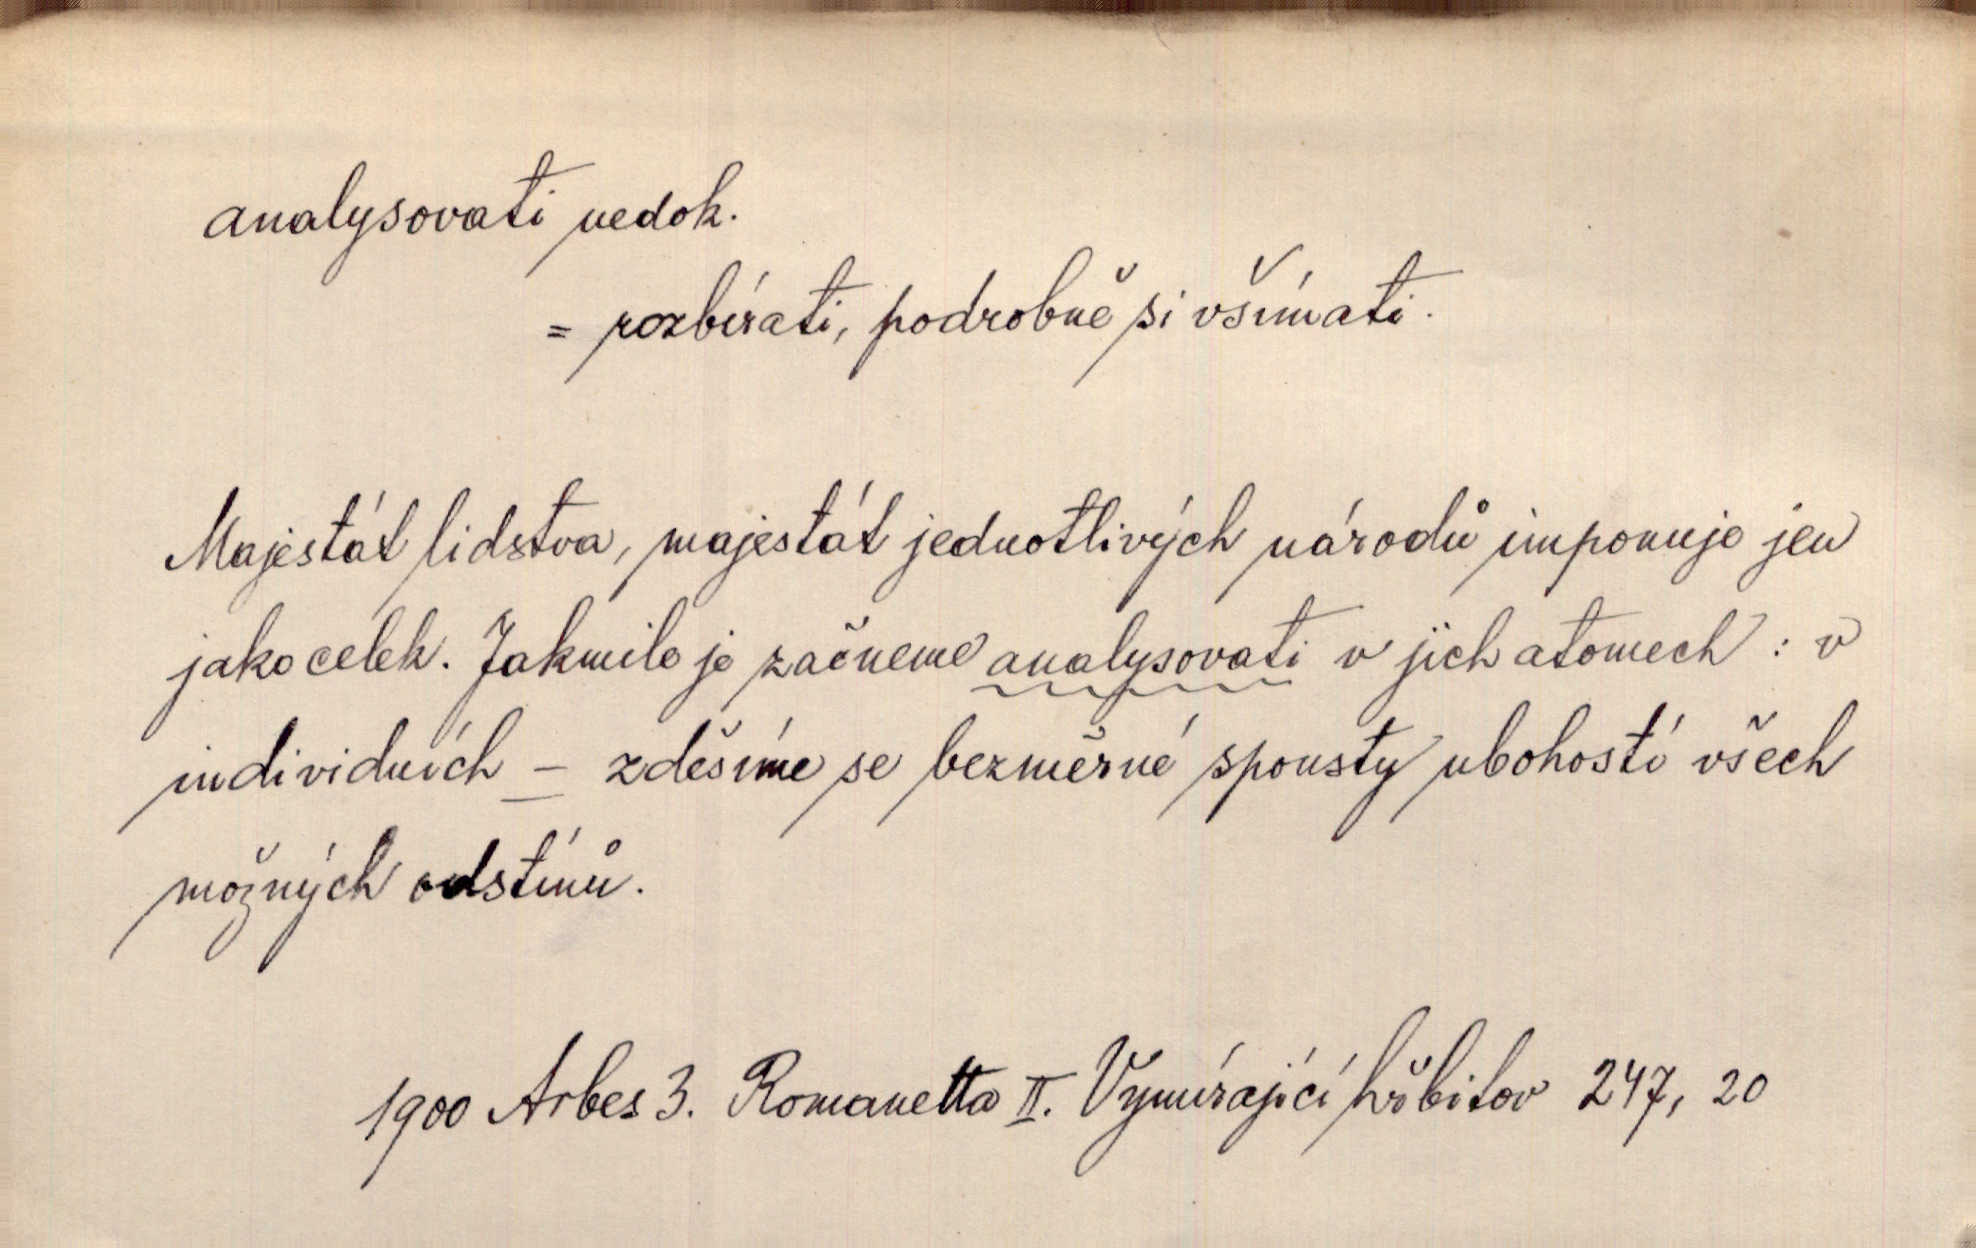 analysovati nedok.
= rozbírati, podrobně si všímati.
Majestát lidstva, majestát jednotlivých národů imponuje jen
jako celek. Jakmile je začneme analysovati v jich atomech : v
individuích – zděsíme se bezměrné spousty ubohostí všech
možných odstínů.
1900 Arbes 3. Romanetta II. Vymírající hřbitov 247, 20